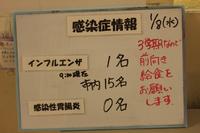 感染症情報
1/8(水)
インフルエンザ 1名
9:30現在
寺内 15名
感染性胃腸炎 0名
3学期なので
前向き
給食を
お願い
します。